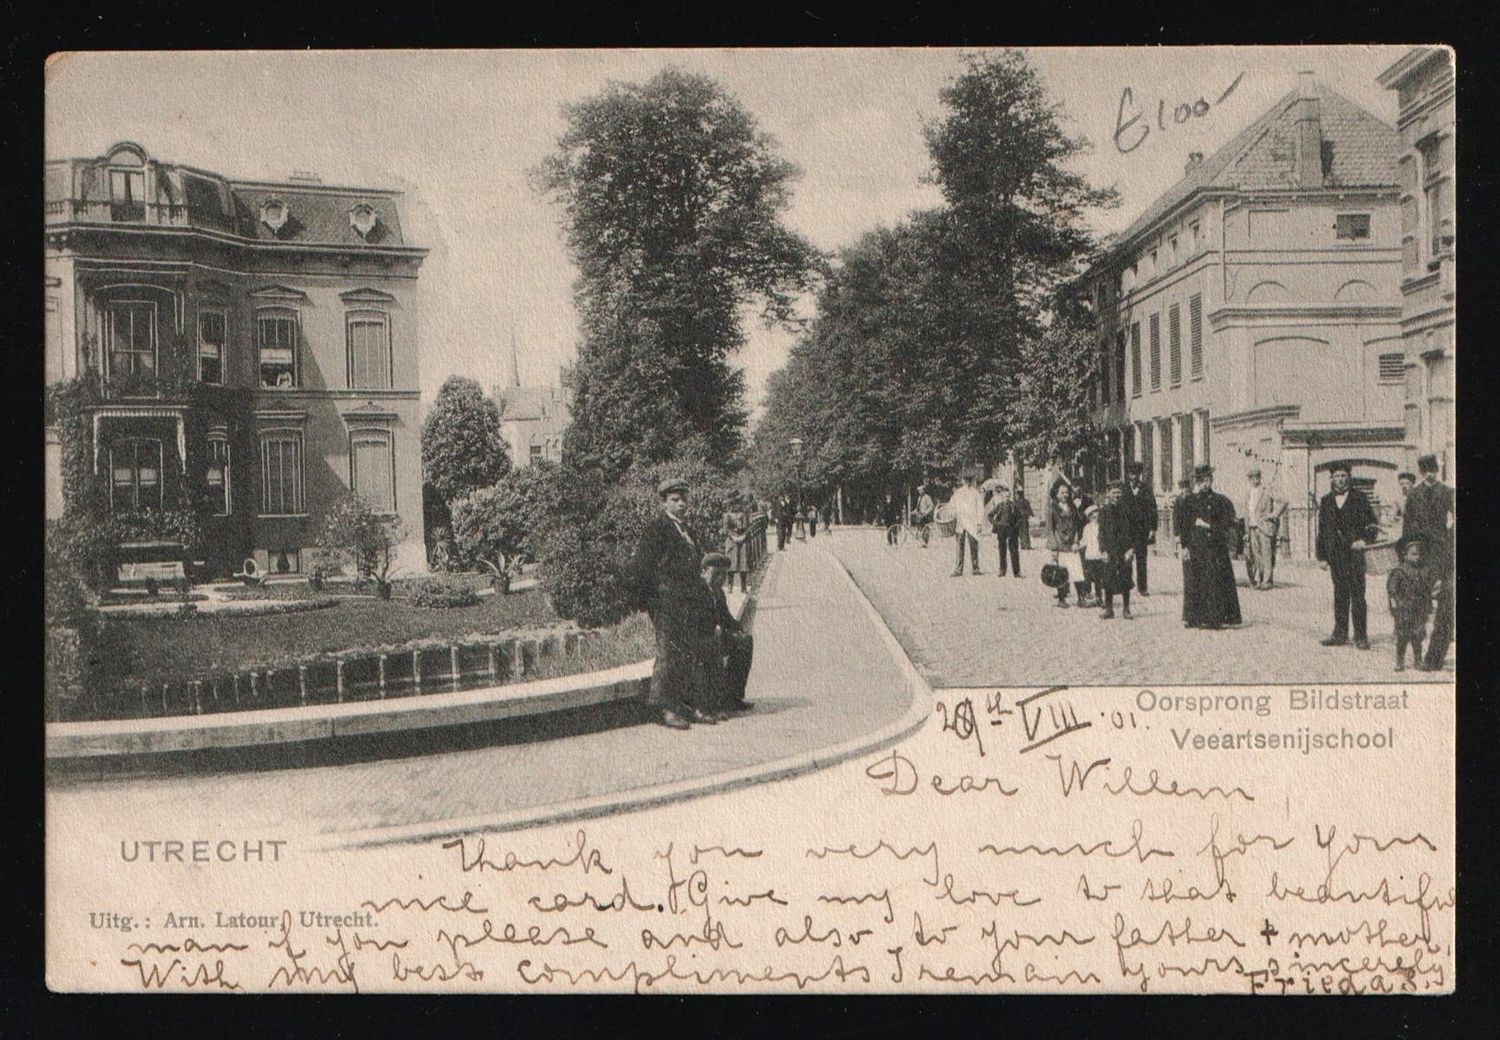 £100
Oorsprong Bildstraat
Veeartsenijschool
th VIII '01.
Dear Willem
UTRECHT
Thank you very much for your
nice card. Give my love to that beautiful
Uitg.: Arn. Latour, Utrecht.
man if you please and also to your father + mother.
With my best compliments I remain yours sincerely
Frieda S.